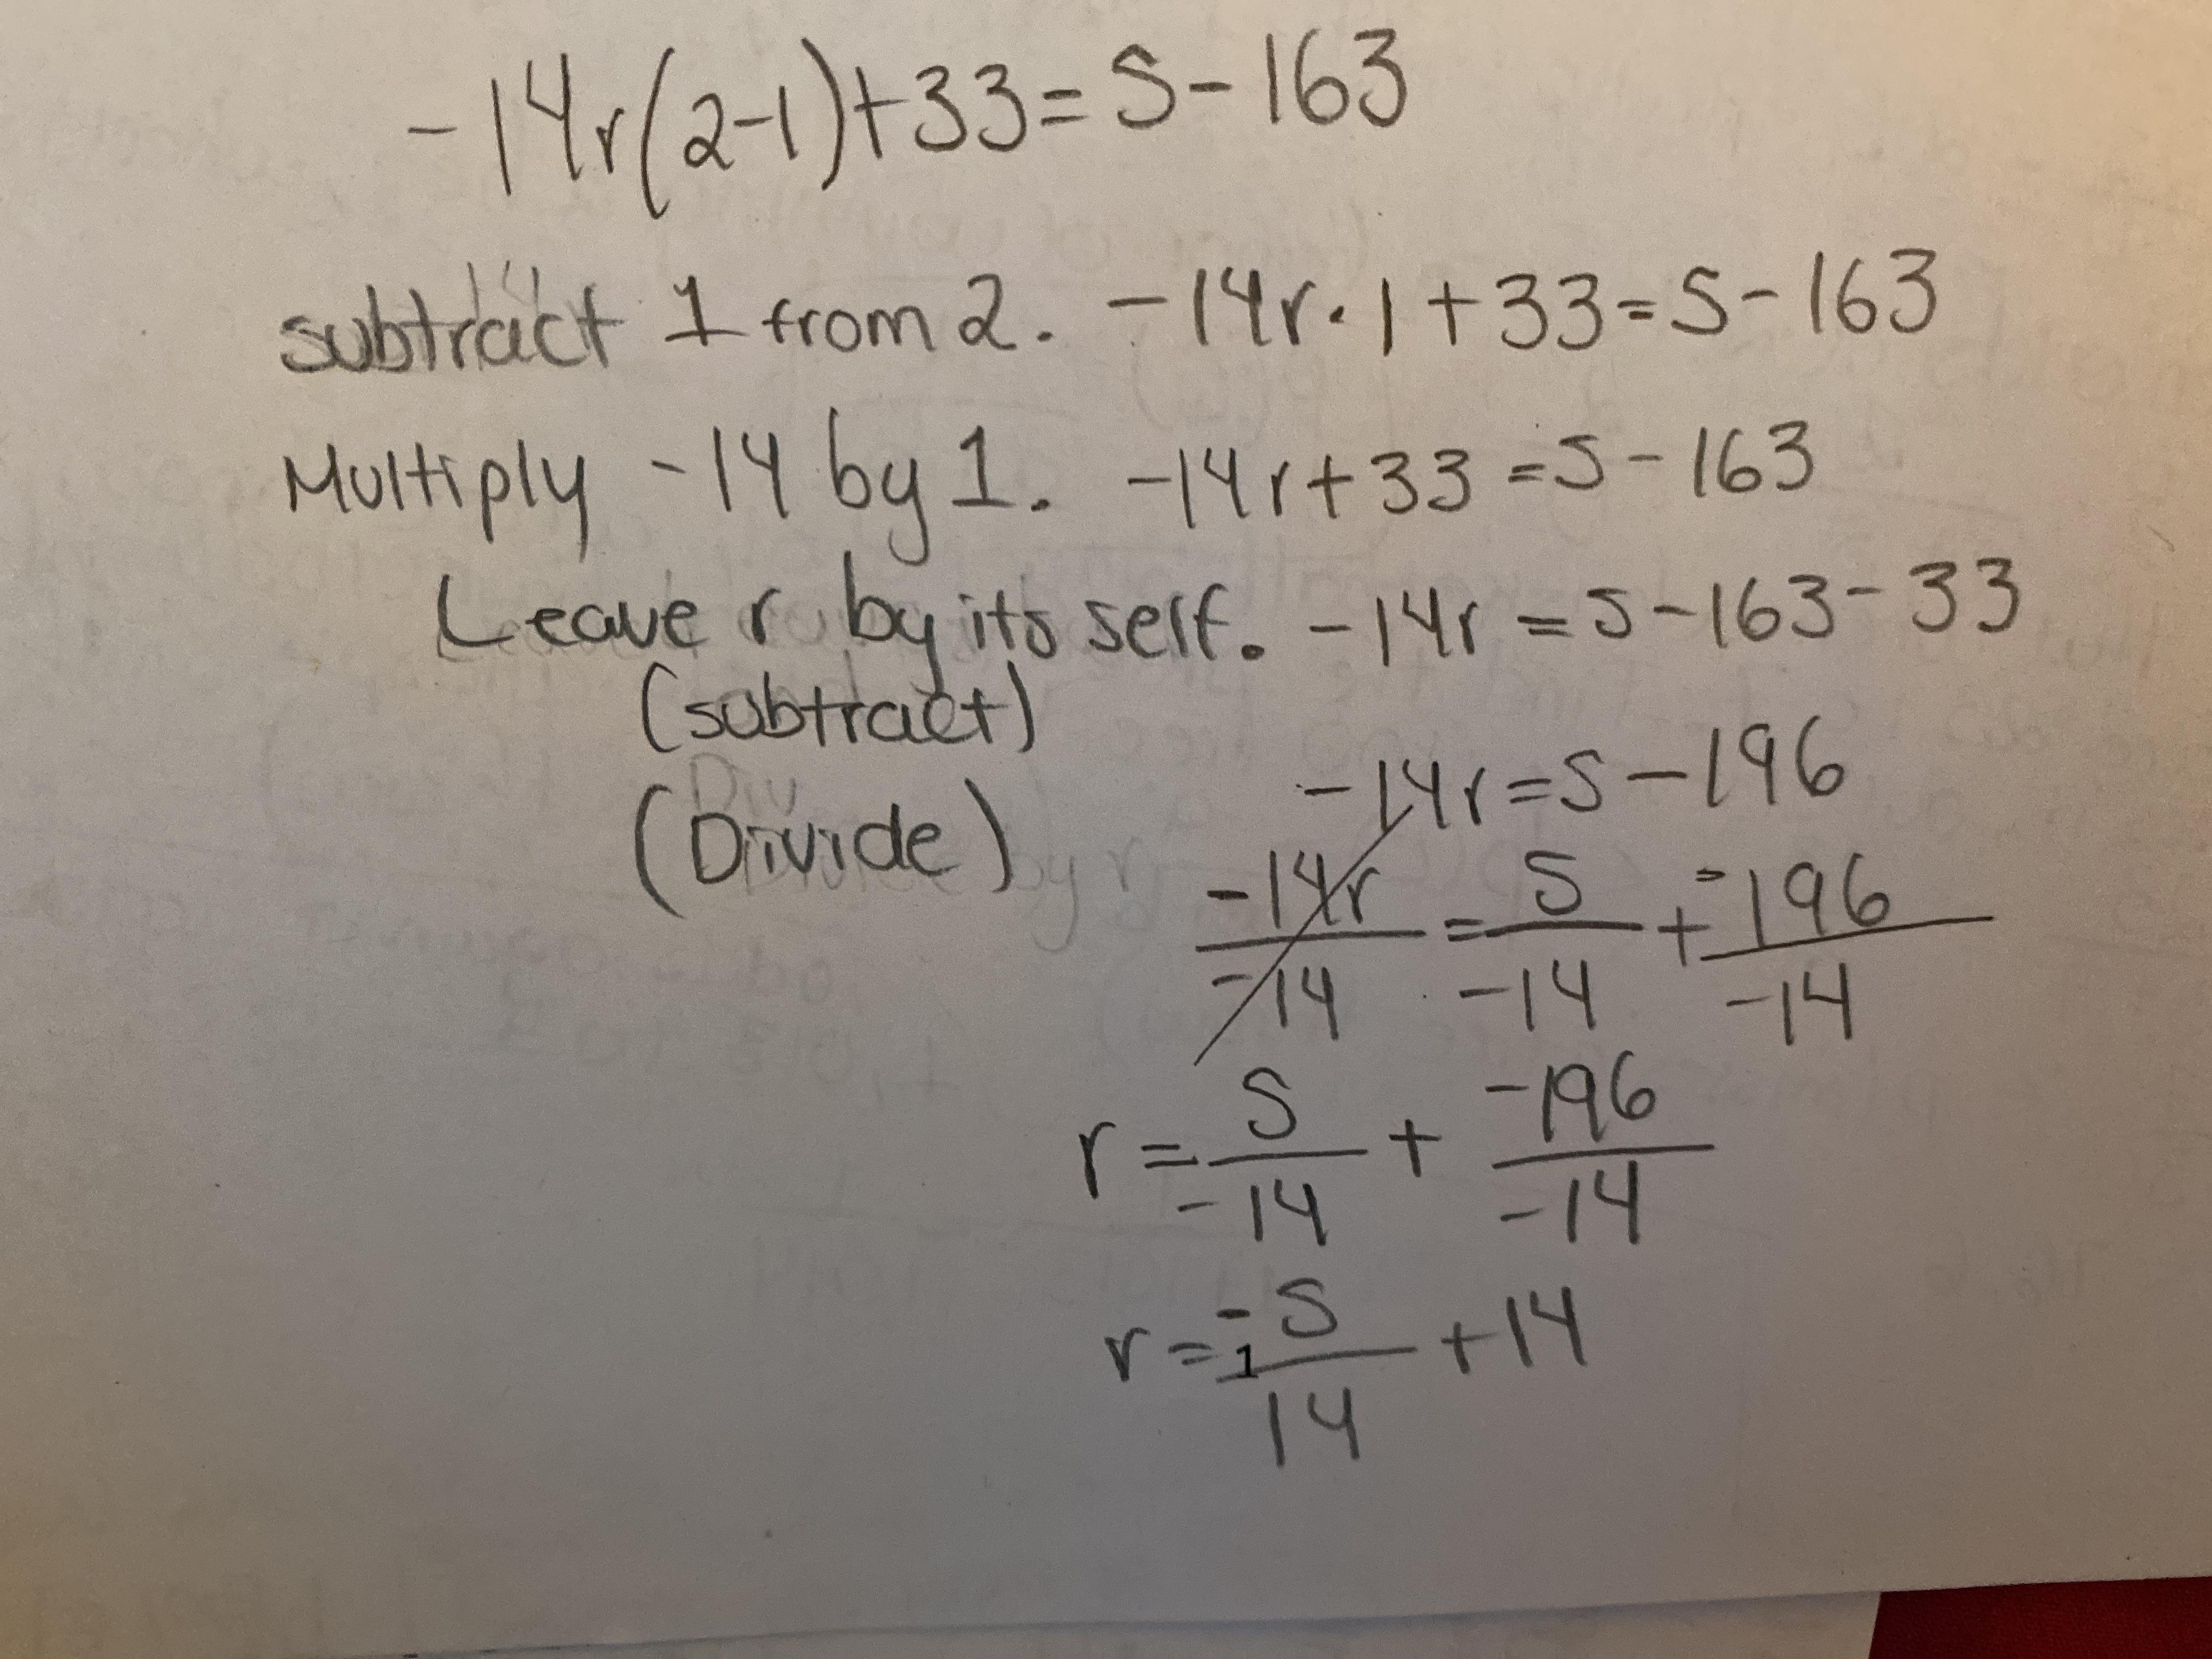 -14r(2-1)+33=S-163
subtract 1 from 2. -14r·1+33=S-163
Multiply -14 by 1. -14r+33=S-163
Leave r by its self. -14r=S-163-33
(subtract)
-14r=S-196
(Divide)
-14r/-14=S/-14+-196/-14
r=S/-14+-196/-14
r=-1S/14+14